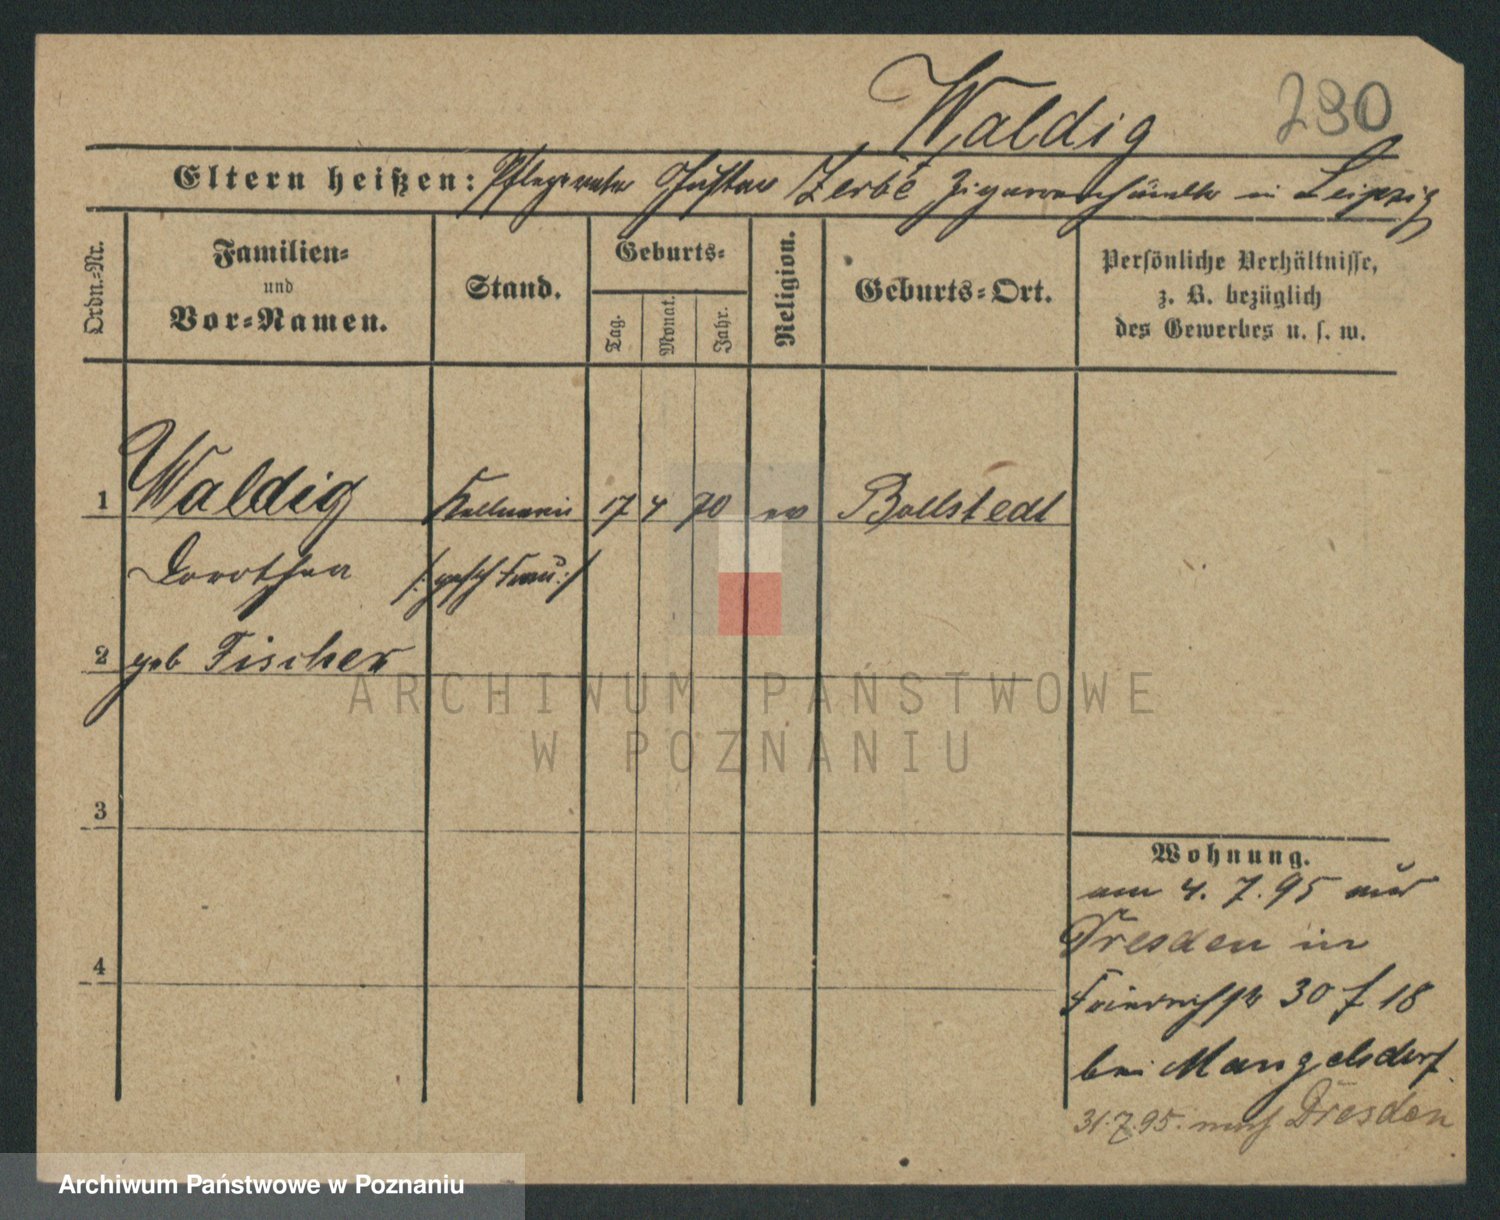 Waldig
290
Eltern heißen: Pflegevater Gustav Zerbé Zigarrenhändler in Leipzig
Ordn.-Nr.
Familien-
und
Vor-Namen.
Stand.
Geburts-
Tag.
Monat.
Jahr.
Religion.
Geburts-Ort.
Persönliche Verhältnisse,
z. B. bezüglich
des Gewerbes u. s. w.
1 Waldig Kellnerin 17 4 70 ev Bollstedt
Dorothea /: gesch Frau :/
2 geb Fischer
3
4
Wohnung.
am 4. 7. 95 aus
Dresden in
30 18
bei Mangelsdorf
31.7.95. nach Dresden
ARCHIWUM PAŃSTWOWE
W POZNANIU
Archiwum Państwowe w Poznaniu